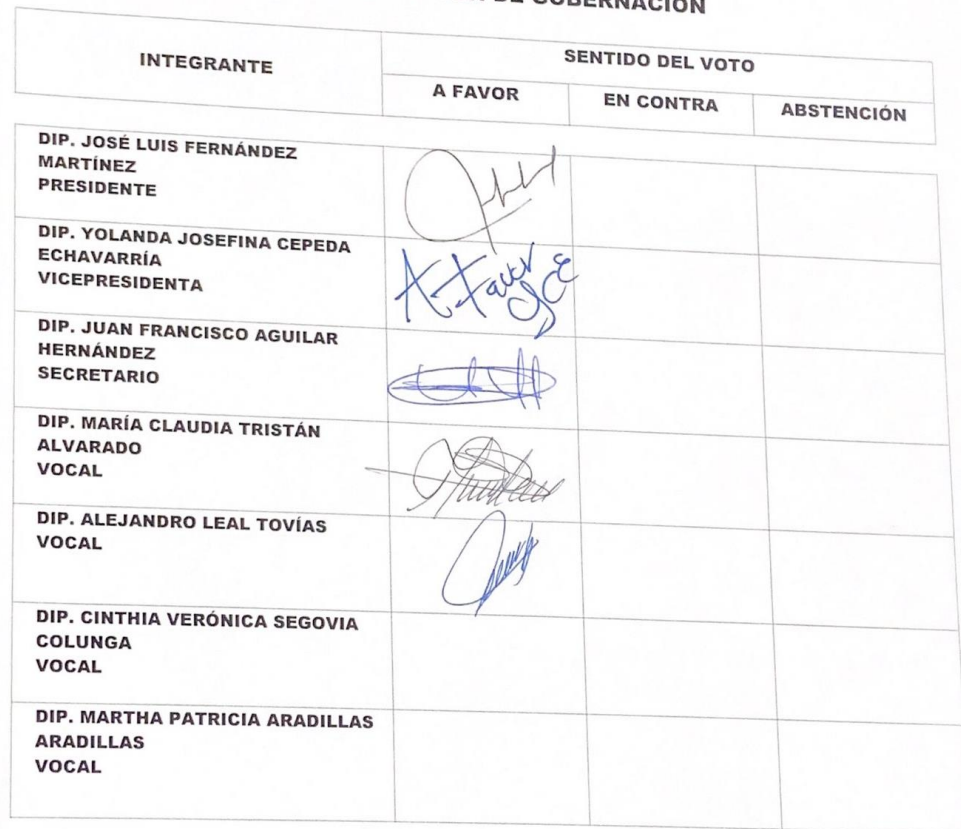 DE GOBERNACIÓN
INTEGRANTE
SENTIDO DEL VOTO
A FAVOR
EN CONTRA
ABSTENCIÓN
DIP. JOSÉ LUIS FERNÁNDEZ
MARTÍNEZ
PRESIDENTE
DIP. YOLANDA JOSEFINA CEPEDA
ECHAVARRÍA
VICEPRESIDENTA
A Favor
DIP. JUAN FRANCISCO AGUILAR
HERNÁNDEZ
SECRETARIO
DIP. MARÍA CLAUDIA TRISTÁN
ALVARADO
VOCAL
DIP. ALEJANDRO LEAL TOVÍAS
VOCAL
DIP. CINTHIA VERÓNICA SEGOVIA
COLUNGA
VOCAL
DIP. MARTHA PATRICIA ARADILLAS
ARADILLAS
VOCAL